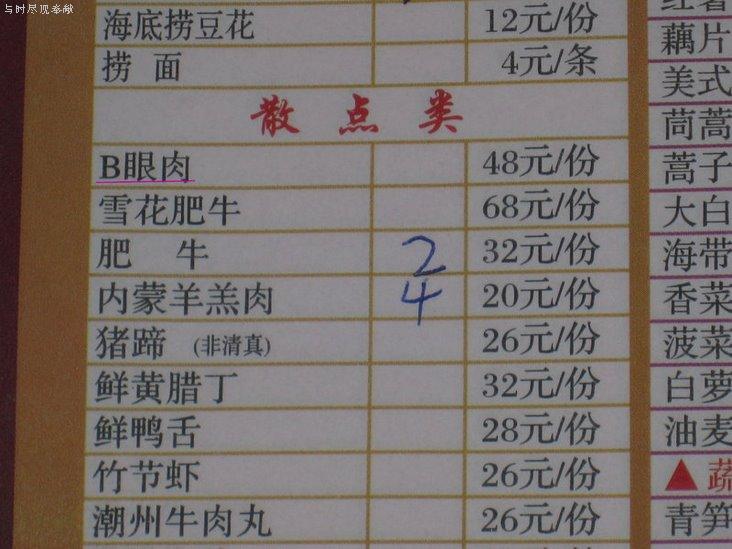 与时尽现春敝
海底捞豆花 12元/份
捞 面 4元/条
散点类
B眼肉 48元/份
雪花肥牛 68元/份
肥 牛 2 32元/份
内蒙羊羔肉 4 20元/份
猪蹄 (非清真) 26元/份
鲜黄腊丁 32元/份
鲜鸭舌 28元/份
竹节虾 26元/份
潮州牛肉丸 26元/份
藕片
美式
茼蒿
蒿子
大白
海带
香菜
菠菜
白萝
油麦
▲蔬
青笋